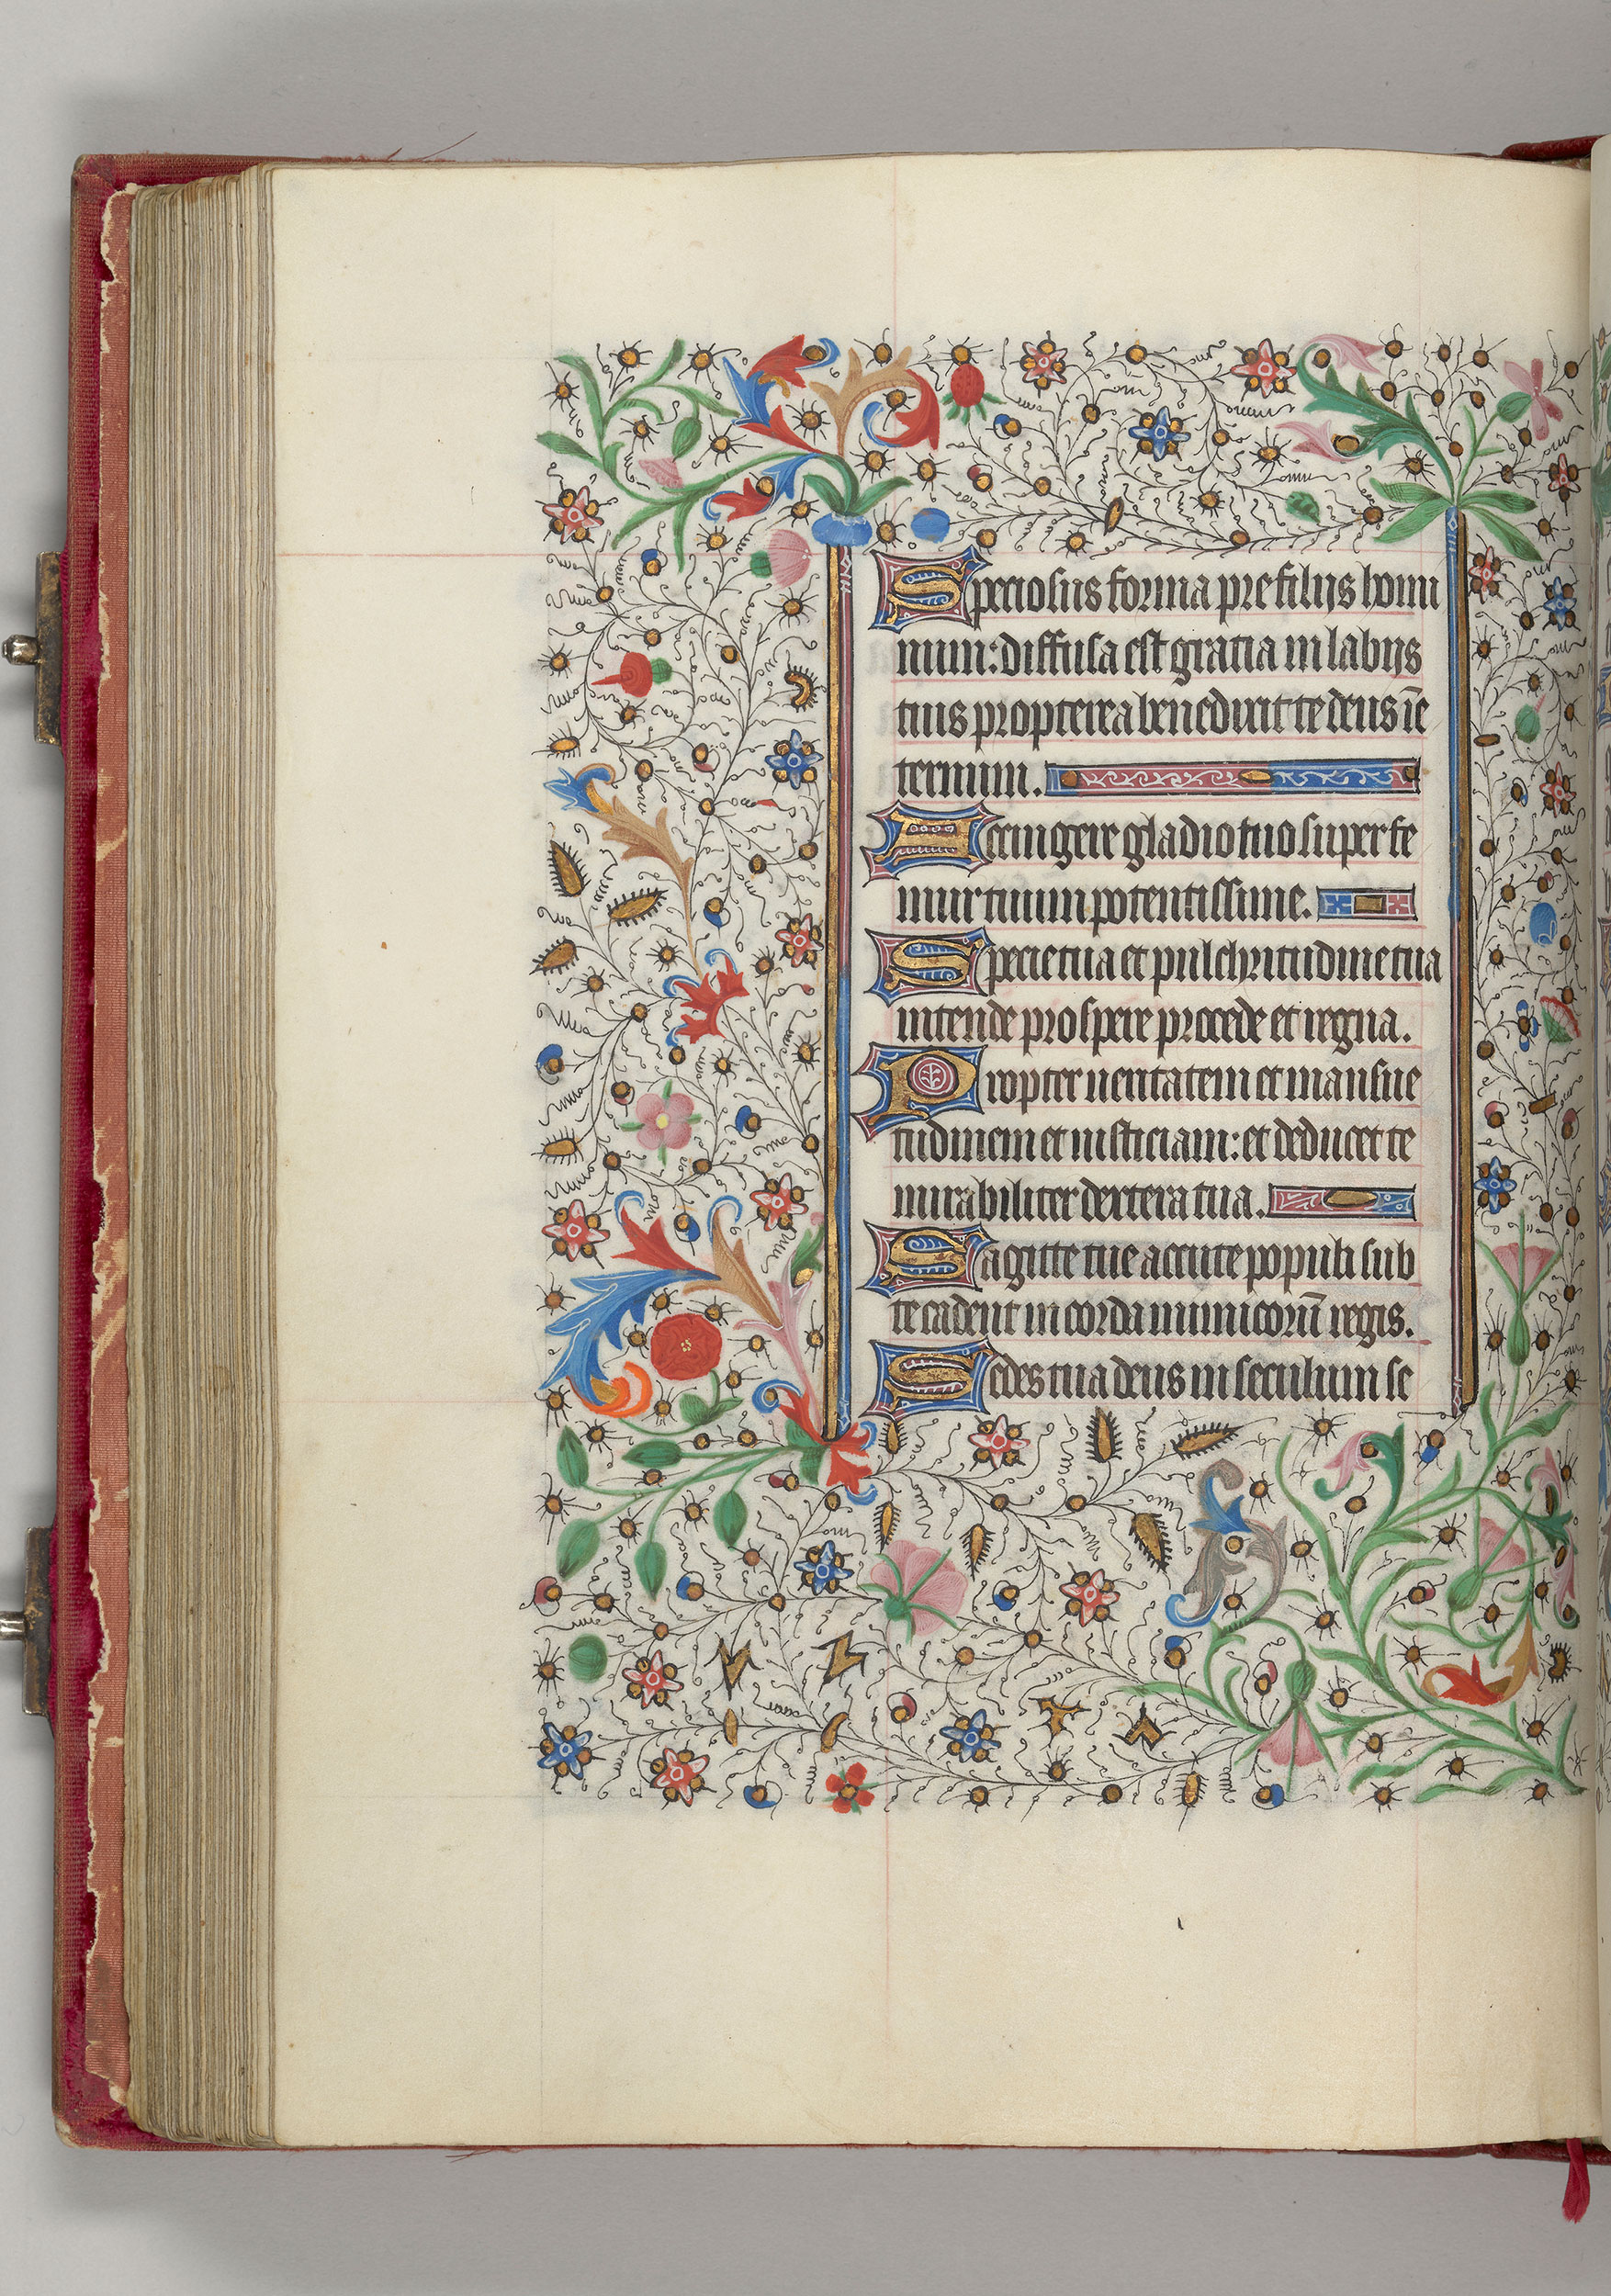 Speciosus forma pre filijs homi
num: diffusa est gratia in labijs
tuis propterea benedixit te deus ī e
ternum.
Accingere gladio tuo super fe
mur tuum potentissime.
Specie tua et pulchritudine tua
intende prospere procede et regna.
Propter ueritatem et mansue
tudinem et iusticiam: et deducet te
mirabiliter dextera tua.
Sagitte tue accute populi sub
te cadent in corda inimicorū regis.
Sedes tua deus in seculum se